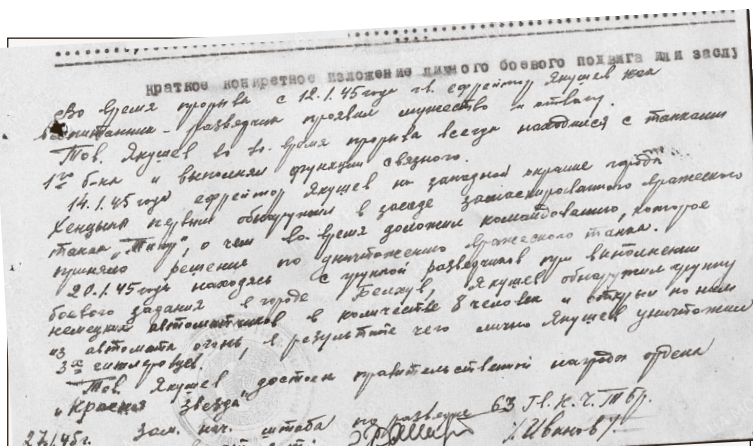 Краткое конкретное изложение личного боевого подвига или заслу
Во время прорыва с 12.1.45 года гв. ефрейтор Якушев как
воспитанник-разведчик проявил мужество и отвагу.
Тов. Якушев во время прорыва всегда находился с танками
1го б-на и выполнял функции связного.
14.1.45 года ефрейтор Якушев на западной окраине города
Хенцыны первым обнаружил в засаде замаскированного вражеского
танка „Тигр", о чем во время доложил командованию, которое
приняло решения по уничтожению вражеского танка.
20.1.45 года находясь с группой разведчиков при выполнении
боевого задания в городе Белхув, Якушев обнаружил группу
немецких автоматчиков в количестве 8 человек и открыл по ним
из автомата огонь, в результате чего лично Якушев уничтожил
3х гитлеровцев.
Тов. Якушев достоин правительственной награды ордена
„Красная Звезда"
Зам. нач. штаба по разведке 63 Гв. К. Ч. Т бр.
27/1 45г. /Иванов/